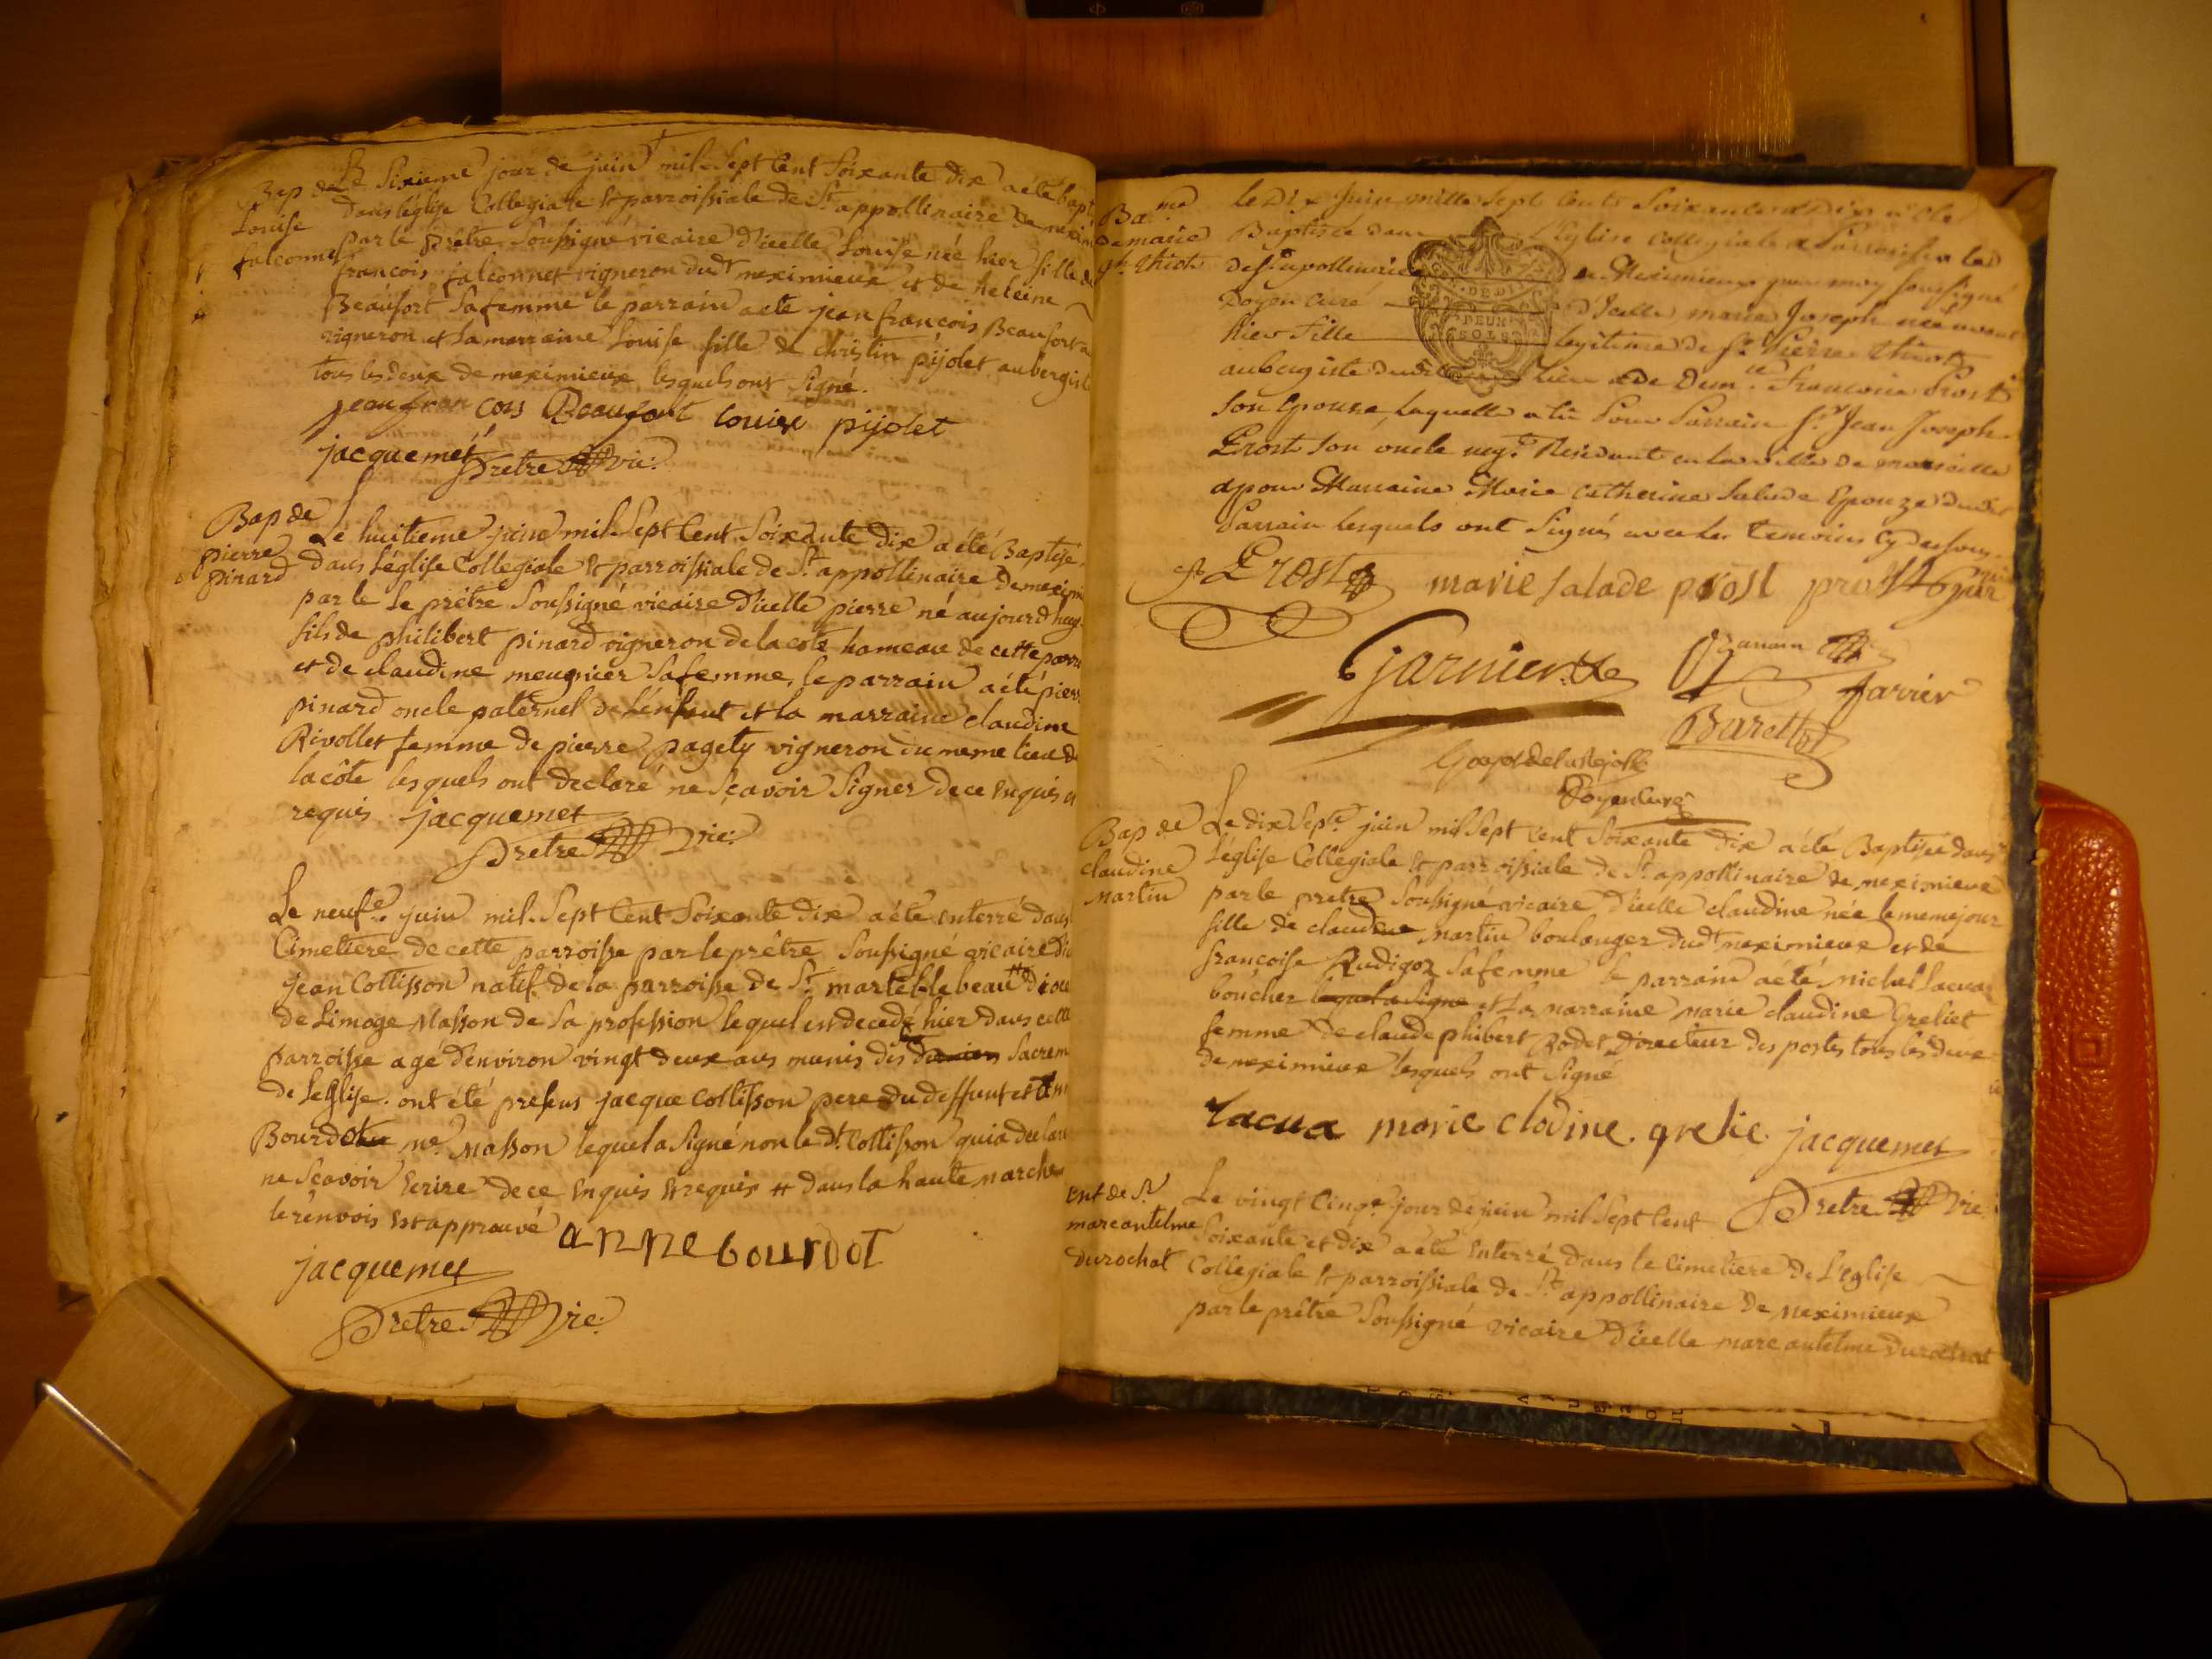 Bap de
Louise
falconnet
Le Sixieme jour de juin mil Sept Cent Soixante dix a été bapt
dans l'église Collegiale et parroissiale de St appollinaire de mexim
par le Prêtre Soussigné vicaire d'icelle Louise née hier fille de
francois falconnet vigneron dudt meximieux et de heleine
Beaufort Sa femme le parrain a eté jean francois Beaufort
vigneron et la marraine Louise fille de Christin pijolet aubergiste
tous les deux de meximieux lesquels ont Signé.
jean francois Beaufort louise pijolet
jacquemet
Pretre vic:
Bap de
pierre
pinard
Le huitieme juin mil Sept Cent Soixante dix a été Baptisé
dans L'église Collegiale et parroissiale de St appollinaire de mexim
par le Le prêtre Soussigné vicaire d'icelle pierre né aujourd huy
fils de philibert pinard vigneron de la cote hameau de cette parr
et de claudine meugnier Sa femme, le parrain a été pierr
pinard oncle paternel de L'enfant et la marraine claudine
Rivollet femme de pierre pagety vigneron du meme lieu de
la côte lesquels ont declaré ne Sçavoir Signer de ce Enquis et
requis jacquemet
Pretre vic:
Le neufe. juin mil Sept Cent Soixante dix a été Enterré dans
Cimetiere de cette parroisse par le prêtre Soussigné vicaire d'i
jean Collisson natif de la parroisse de St martable beau
de Limoge Masson de Sa profession lequel est decedé hier dans cette
parroisse agé d'environ vingt deux ans munis des derniers Sacrem
de L'eglise. ont été presens jacque Collisson pere du deffunt et
Bourdot me Masson lequel a Signé non le dt. Collisson qui a declaré
ne Sçavoir Ecrire de ce Enquis et requis # dans la haute marche
le renvois Est approuvé anne bourdot
jacquemet
Prêtre vic:
Bame
de marie
jh. thiot
le Dix Juin mille Sept Cents Soixante et Dix a été
Baptisée dans L'Eglise Collegiale et Parroissialle
de St. apollinaire de Meximieux par moy soussigné
Doyen Curé d'Icelle marie Joseph née avant
hier fille legitime de Sr. Pierre thiot
aubergiste dudit Lieu et de Demlle. Francoise Prost
Son Epouse, laquelle a eu Pour Parrain Sr. Jean Joseph
Prost Son oncle negt. Residant en la ville de marseille
et pour Marraine Marie Catherine Salade Epouze dudit
Parrain lesquels ont Signés avec les temoins Cy dessous.
DE DI
DEUX
SOLS
Prost marie salade prost
Garnier
Farrier
Barett
Doyen Curé
Bap de
claudine
Martin
Le dix Sepe. juin mil Sept Cent Soixante dix a été Baptisée dans
L'église Collegiale et parroissiale de St. appollinaire de meximieux
par le pretre Soussigné vicaire d'icelle claudine née le meme jour
fille de claudine Martin boulanger dudt meximieux et de
françoise Rudigoz Sa femme le parrain a été michel Lacua
boucher lequel a Signé et la marraine marie claudine Greliet
femme de claude phibert Rodet Directeur des postes tous les deux
de meximieux lesquels ont Signé
Lacua marie clodine grelie jacquemet
Prêtre vic:
Ent de Sr
marc antelme
durochat
Le vingt Cinqe. jour de juin mil Sept Cent
Soixante et dix a été Enterré dans le Cimetiere de L'eglise
Collegiale et parroissiale de St. appollinaire de Meximieux
par le prêtre Soussigné vicaire d'icelle marc antelme durochat